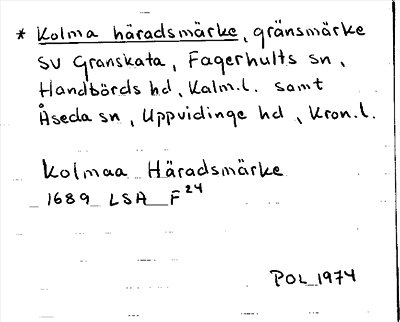 * Kolma häradsmärke, gränsmärke
SV Granskata, Fagerhults sn,
Handbörds hd, Kalm.l. samt
Åseda sn, Uppvidinge hd, Kron.l.
Kolmaa Häradsmärke
1689 LSA F24
POL 1974